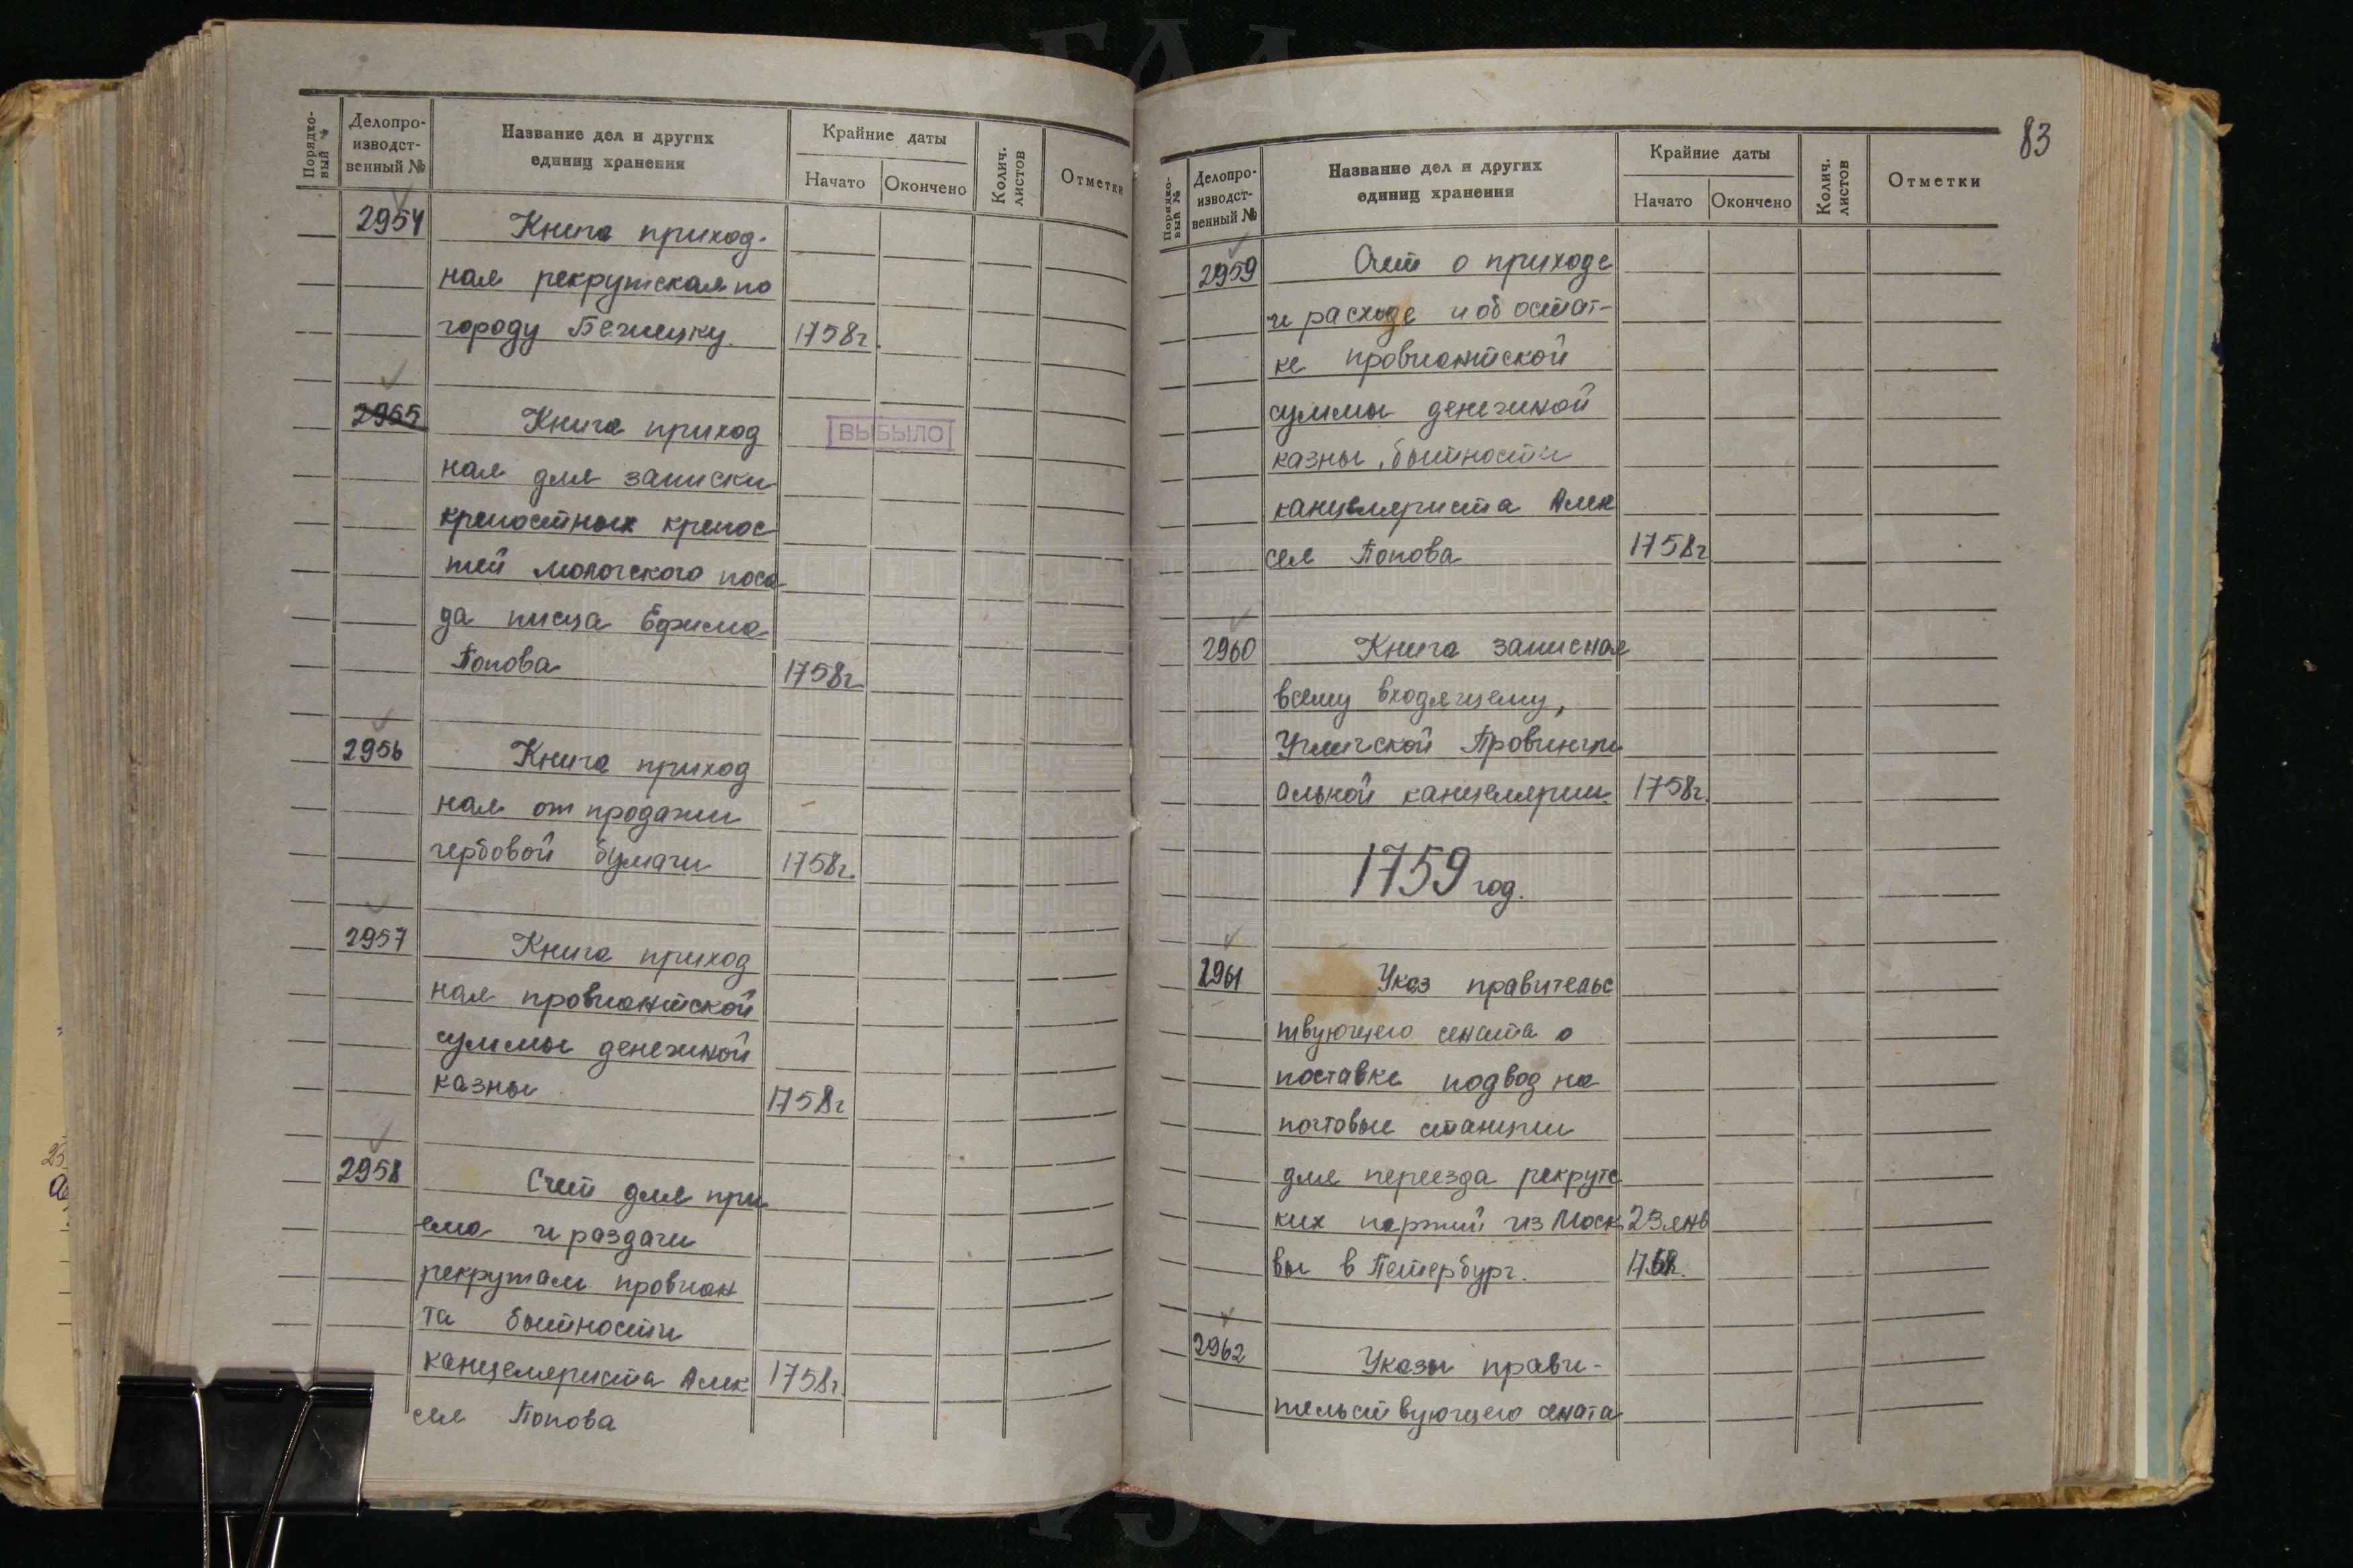 Порядко-
вый №
Делопро-
изводст-
венный №
Название дел и других
единиц хранения
Крайние даты
Начато
Окончено
Колич.
листов
Отметки
2954
Книга приход-
ная рекрутская по
городу Бежецку. 1758г.
2955
Книга приход
ВЫБЫЛО
ная для записки
крепостных крепос
тей мологского поса
да писца Ефима
Попова 1758г
2956
Книга приход
ная от продажи
гербовой бумаги 1758г.
2957
Книга приход
ная провиантской
суммы денежной
казны 1758г
2958
Счет для при
ема и раздачи
рекрутам провиан
та бытности
канцеляриста Алек 1758г.
сея Попова
83
Порядко-
вый №
Делопро-
изводст-
венный №
Название дел и других
единиц хранения
Крайние даты
Начато
Окончено
Колич.
листов
Отметки
2959
Счет о приходе
и расходе и об остат-
ке провиантской
суммы денежной
казны, бытности
канцеляриста Алек
сея Попова 1758г
2960
Книга записная
всему входящему,
Угличской Провинци
альной канцелярии. 1758г.
1759 год.
2961
Указ правительс
твующего сената о
поставке подвод на
почтовые станции
для переезда рекрутс
ких партий из Моск 23 янв
вы в Петербург.
2962
Указы прави-
тельствующего сената